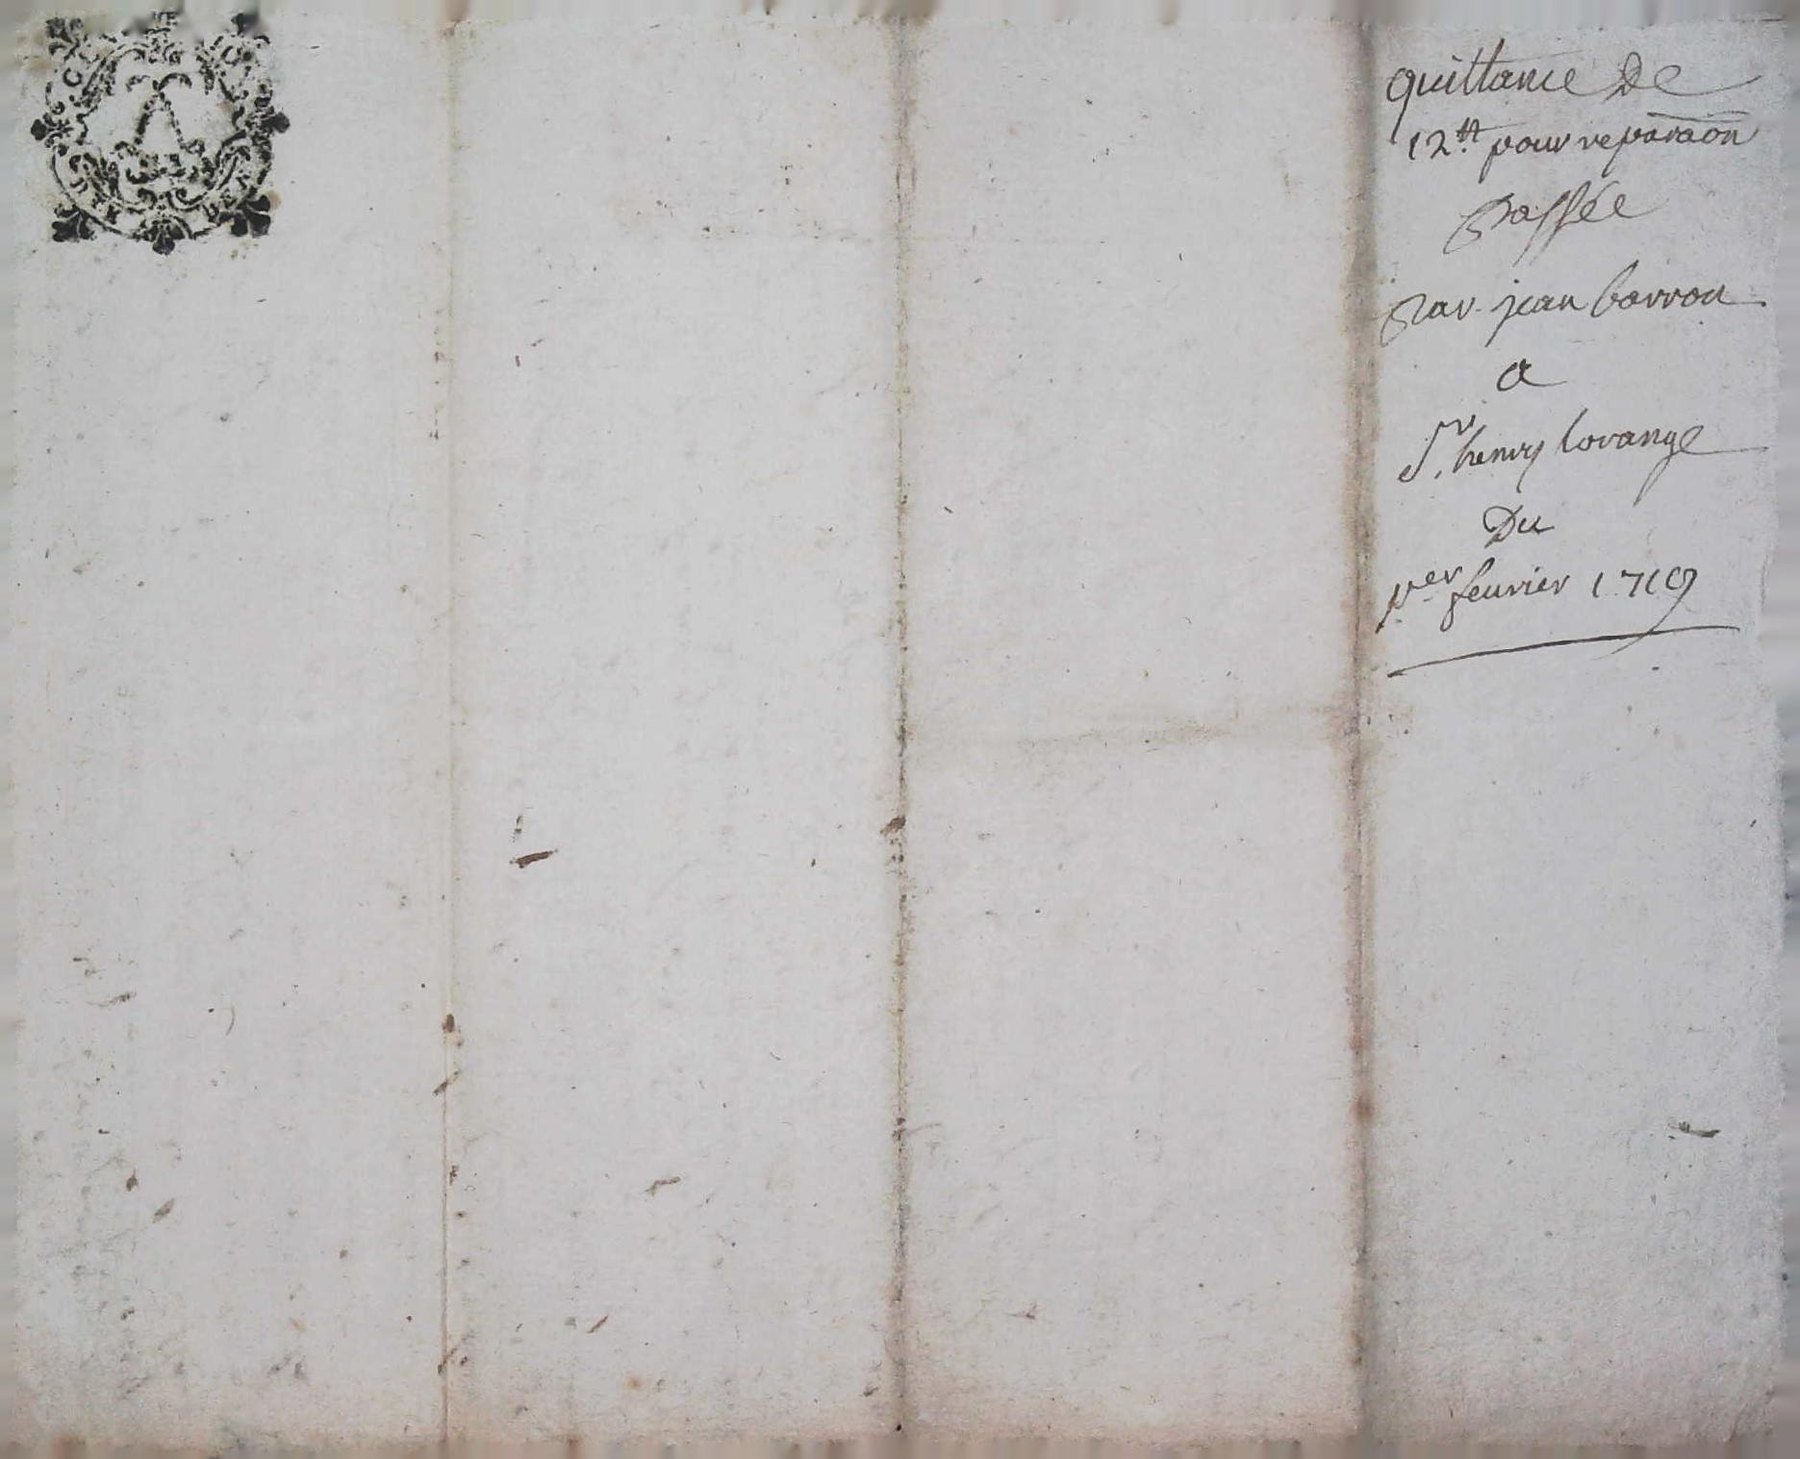 quittance de
12tt pour reparaon
passée
par jean barrou
a
Sr. henry lorange
Du
per feuvrier 1719